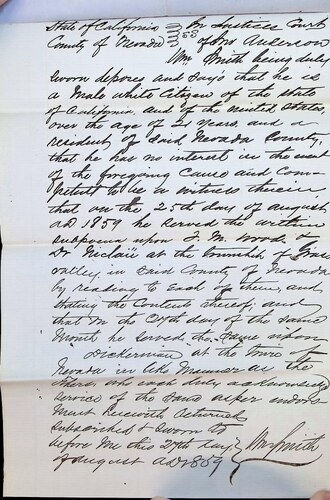 State of California } In Justices Court
County of Nevada } SS of Jno Anderson
Wm Smith being duly
sworn deposes and Say's that he is
a Male white Citizen of the State
of California, and of the united States
over the age of 21 Years, and a
resident of Said Nevada County,
that he has no interest in the
of the foregoing Cause and Com-
petent to be a witness therein,
that on the 25th day of august
AD 1859 he served the within
subpoena upon J. M. Wood, &
Dr McClair at the township of Grass
Valley, in Said County of Nevada
by reading to Each of them, and
Stating the Contents thereof; and
that on the 27th day of the Same
Month he Served the Same upon
Dickerman at the Town of
Nevada in like Manner as the
others, who each duly acknowledge
Service of the Same as per endors
Ment herewith returned
Subscribed & Sworn to
before Me this 27th day } Wm Smith
of august AD 1859